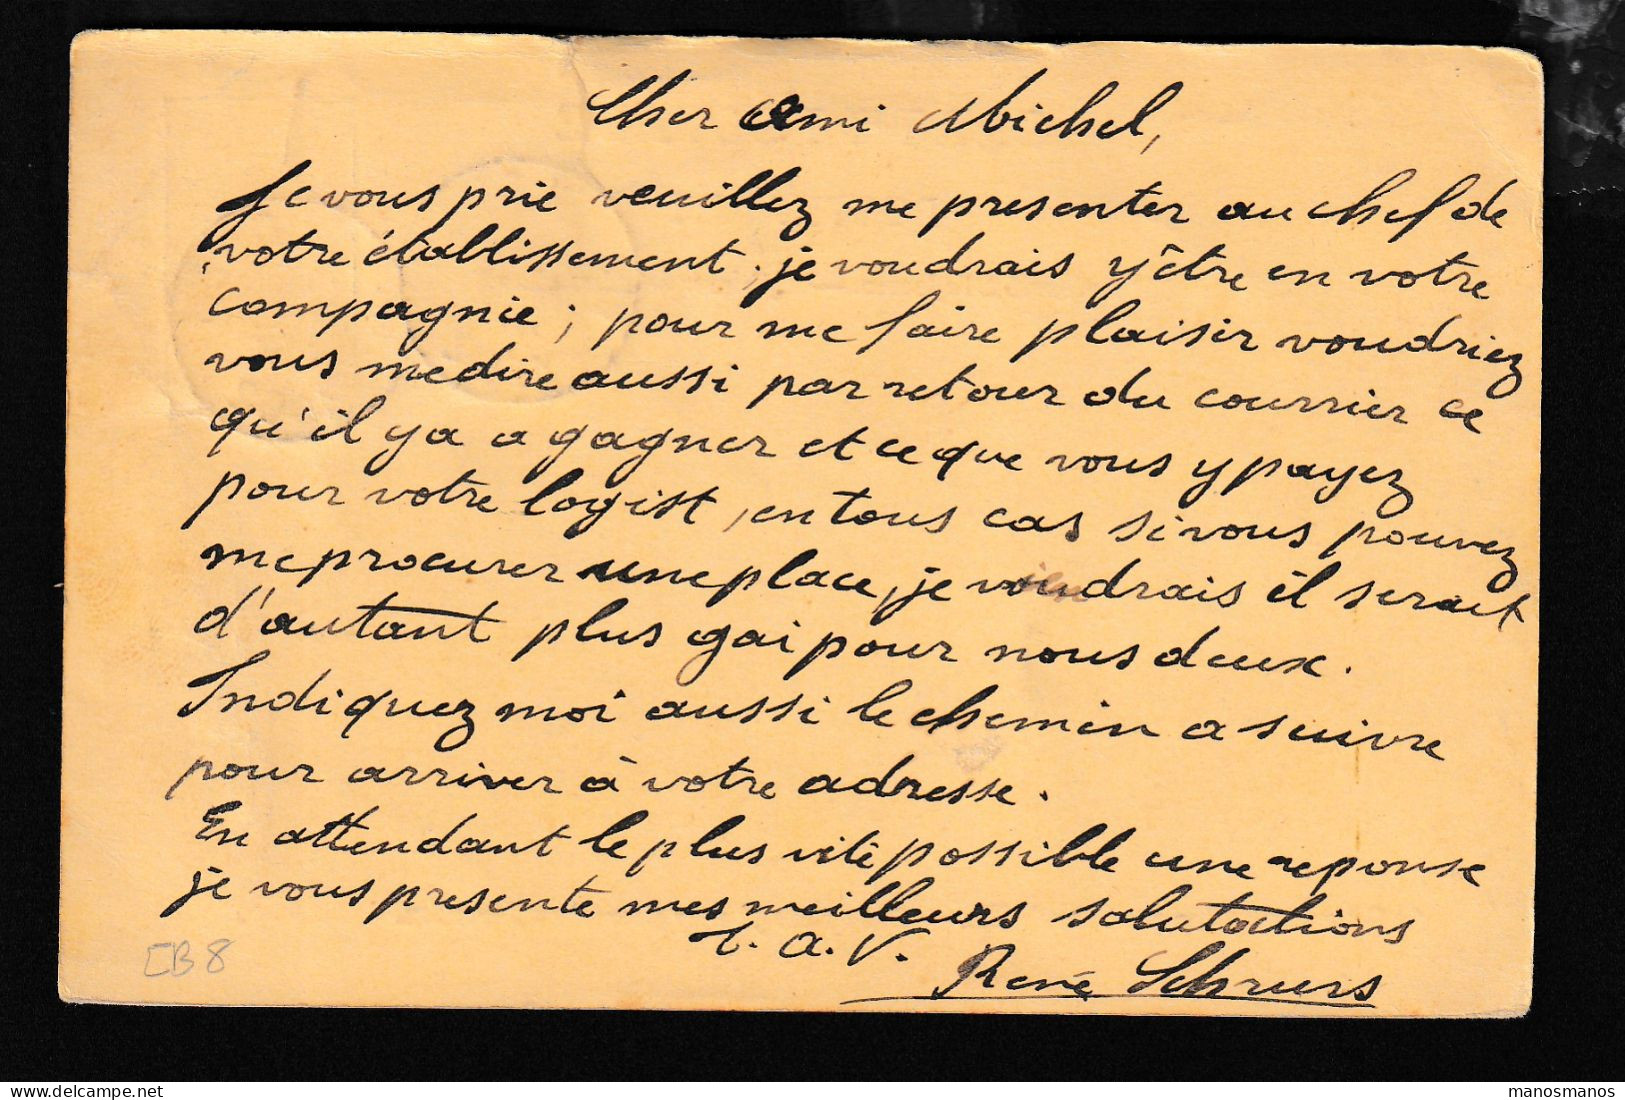 Cher Ami Michel,
Je vous prie veuillez me presenter au chef de
votre établissement. je voudrais y être en votre
compagnie ; pour me faire plaisir voudriez
vous me dire aussi par retour du courrier ce
qu'il y a a gagner et ce que vous y payez
pour votre logist, en tous cas si vous pouvez
me procurer une place, je voudrais il serait
d'autant plus gai pour nous deux.
Indiquez moi aussi le chemin a suivre
pour arriver à votre adresse.
En attendant le plus vite possible une reponse
je vous presente mes meilleurs salutations
t. a. V.
René Schruers
CB 8
manosmanos